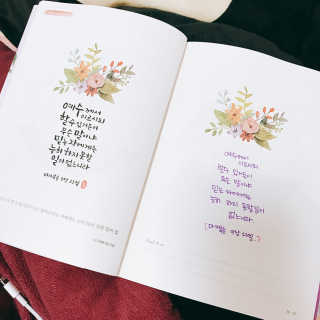 예수께서
이르시되
할 수 있거든이
무슨 말이냐
믿는 자에게는
능히 하지 못할
일이 없느니라
마가복음 9장 23절
예수께서
이르시되
할 수 있거든이
무슨 말이냐
믿는 자에게는
능히 하지 못할 일이
없느니라
[마가복음 9장 23절.]